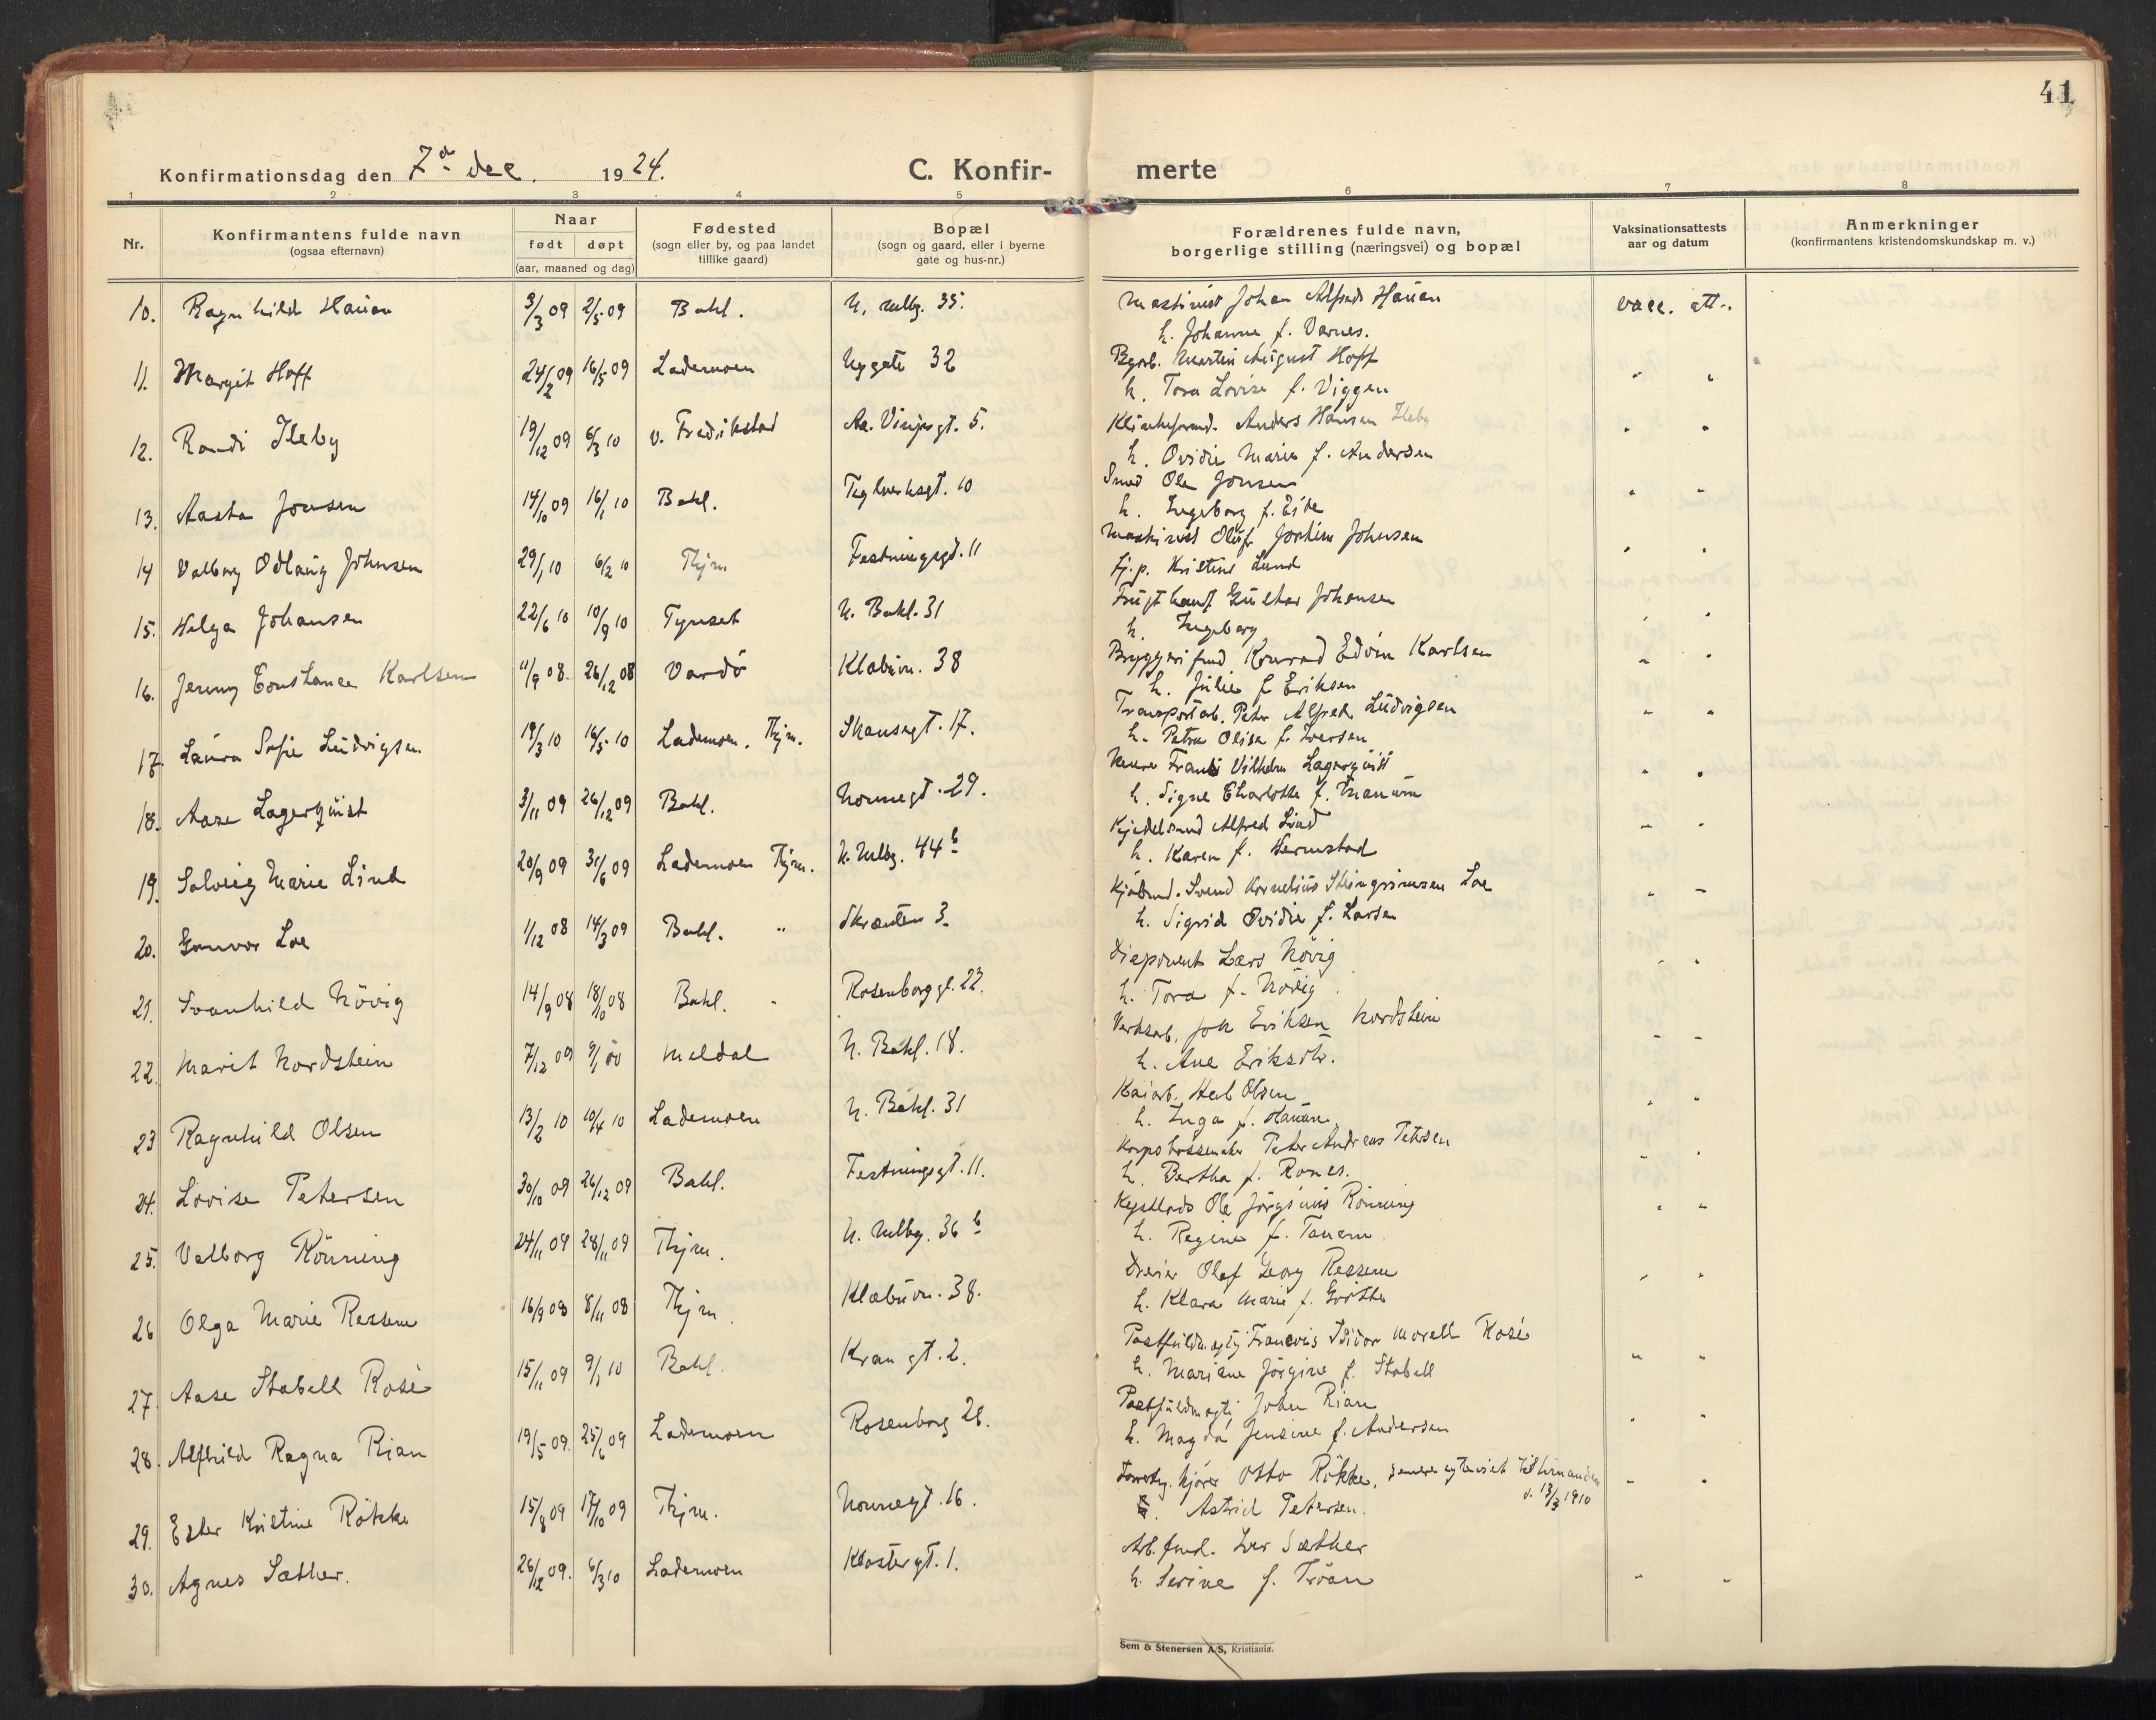 41
Konfirmationsdag den 7de dec. 1924.
C. Konfir- merte
1 2 3 4 5 6 7 8
Nr.
Konfirmantens fulde navn
(ogsaa efternavn)
Naar
født døpt
(aar, maaned og dag)
Fødested
(sogn eller by, og paa landet
tillike gaard)
Bopæl
(sogn og gaard, eller i byerne
gate og hus-nr.)
Forældrenes fulde navn,
borgerlige stilling (næringsvei) og bopæl
Vaksinationsattests
aar og datum
Anmerkninger
(konfirmantens kristendomskundskap m. v.)
10. Ragnhild Hauan 3/3 09 2/5 09 Bakl. N. Mllbg. 35. Maskinist Johan Alfred Hauan vacc. att..
h. Johanne f. Varnes.
11. Margit Hoff 24/2 09 16/5 09 Lademoen Nygate 32 Bgarb. Martin August Hoff " "
h. Tora Lovise f. Viggen
12. Randi Ileby 19/12 09 6/3 10 v. Fredrikstad Aa. Vinjesgt. 5. Anders Hansen Ileby " "
h. Ovidie Marie f. Andersen
13. Aasta Jonsen 14/10 09 16/1 10 Bakl. Teglverksgt. 10 Smed Ole Jonsen " "
h. Ingeborg f. Eide
14 Valborg Odlaug Johnsen 29/1 10 6/2 10 Thjm Festningsgt. 11 Maskinist Oluf Joakim Johnsen " "
fj.p. Kristine Lund
15. Helga Johansen 22/6 10 10/9 10 Tynset N. Bakl. 31 Frugthandl Gustav Johansen " "
h. Ingeborg
16. Jenny Constance Karlsen 11/9 08. 26/12 08 Vardö Klæbuv. 38 Bryggerifmd. Konrad Edvin Karlsen " "
h. Julie f Eriksen
17. Laura Sofie Ludvigsen 19/3 10 16/5 10 Lademoen. Thjm. Skansegt. 17. Transportarb. Peter Alfred Ludvigsen " "
h. Petra Olise f. Iversen
18. Aase Lagerquist 3/11 09 26/12 09 Bakl. Nonnegt. 29. Murer Frans Vilhelm Lagerquist " "
h. Signe Charlotte f.
19. Solveig Marie Lind 20/9 09 31/6 09 Lademoen Thjm. N. Mllbg. 44 b Kjedelsmed Alfred Lind " "
h. Karen f. Hermstad
20. Gunvor Loe 1/12 08 14/3 09 Bakl. " Skrænten 3. Kjöbmd. Svend Kornelius Steingrimsen Loe " "
h. Sigrid Ovidie f. Larsen
21. Svanhild Növig 14/9 08 18/10 08 Bakl. " Rosenborggt. 22. Disponent Lars Növig " "
h. Tora f. Növig
22. Marit Nordstein 7/12 09 9/1 00 Meldal N. Bakl. 18. Verksarb. Joh Eriksen Nordstein " "
h. Ane Eriksdtr.
23 Ragnhild Olsen 13/2 10 10/4 10 Lademoen N. Bakl. 31 Kaiarb. Olsen " "
h. Inga f. Hauan.
24. Lovise Petersen 30/10 09 26/12 09 Bakl. Festningsgt. 11. Korpsbössemaker Peter Andreas Petersen " "
h. Bertha f. Rones.
25. Valborg Rönning 24/11 09 28/11 09 Thjm. N. Mllbg. 36 b Kystlods Ole Jörginus Rönning " "
h. Regine f. Tanem.
26 Olga Marie Ressem 16/9 08 8/11 08 Thjm. Klæbuvn. 38. Dreier Olaf Georg Ressem " "
h. Klara Marie f.
27. Aase Stabell Rosé 15/11 09 9/1 10 Bakl. Krangt. 2. Postfuldmegtig Francois Isidor Morell Rosé " "
h. Mariane Jörgine f. Stabell
28. Alfhild Ragna Rian 19/5 09. 25/6 09 Lademoen Rosenborg 28. Postfuldmegti John Rian " "
h. Magda Jensine f. Andersen
29. Ester Kristine Rökke 15/8 09 17/10 09 Thjm. Nonnegt. 16. kjörer Otto Rökke, senere egteviet til hinanden " "
d. 13/3 1910
Astrid Petersen.
30. Agnes Sæther. 26/12 09. 6/3 10 Lademoen Klostergt. 1. Arb.fmd. Iver Sæther
h. Serine f. Tröan " "
Sem & Stenersen A/S, Kristiania.